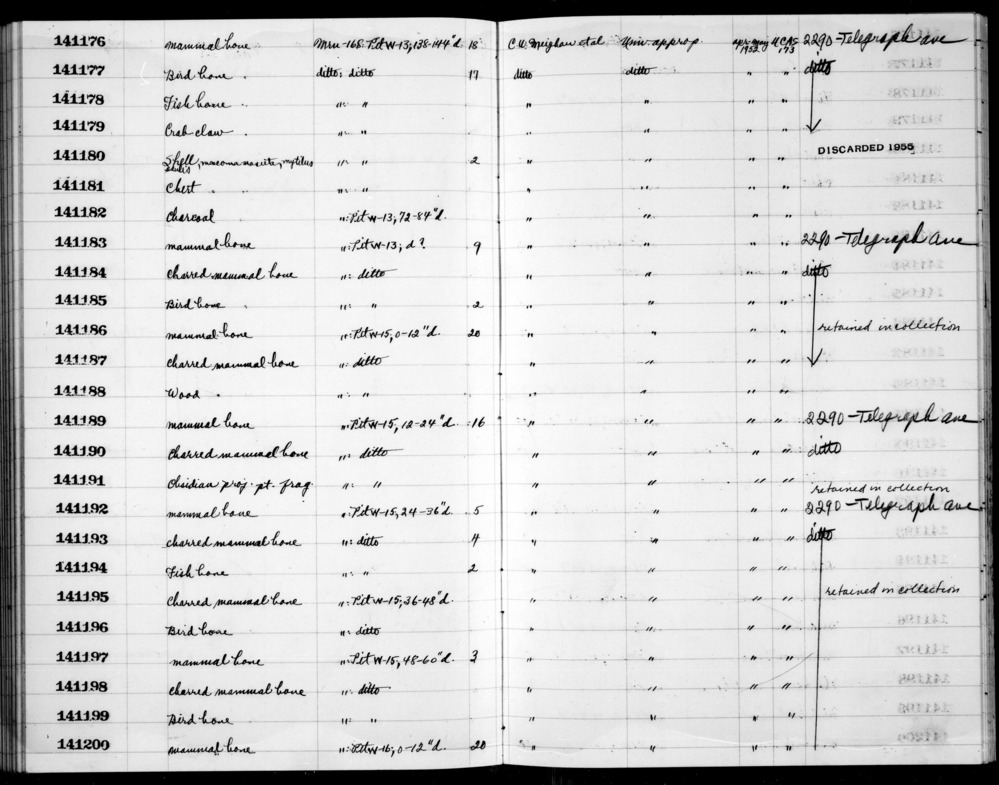 141176 mammal bone Mrn-168: Pit W-13; 138-144"d. 18 C.W. Meighan et al Univ. approp. apr-may 1952 UCAS 173 2290-Telegraph ave
141177 Bird bone . ditto: ditto 17 ditto ditto " " ditto
141178 Fish bone . ": " " " " "
141179 Crab claw . ": " " " " "
141180 Shell, macoma nasuta, mytilus edulis ": " 2 " " " " DISCARDED 1955
141181 Chert . ": " " " " "
141182 Charcoal ": Pit W-13; 72-84"d. " " " "
141183 mammal bone ": Pit W-13; d? 9 " " " " 2290-Telegraph Ave
141184 Charred mammal bone ": ditto " " " " ditto
141185 Bird bone . ": " 2 " " " "
141186 mammal bone ": Pit W-15, 0-12"d. 20 " " " " retained in collection
141187 Charred mammal bone ": ditto " " " "
141188 Wood . ": " " " " "
141189 mammal bone ": Pit W-15, 12-24"d. 16 " " " " 2290-Telegraph ave
141190 Charred mammal bone ": ditto " " " " ditto
141191 Obsidian proj. pt. frag. ": " " " " " retained in collection
141192 mammal bone ": Pit W-15, 24-36"d. 5 " " " " 2290-Telegraph ave
141193 charred mammal bone ": ditto 4 " " " " ditto
141194 Fish bone ": " 2 " " " "
141195 Charred mammal bone ": Pit W-15; 36-48"d. " " " " retained in collection
141196 Bird bone ": ditto " " " "
141197 mammal bone ": Pit W-15, 48-60"d. 3 " " " "
141198 charred mammal bone ": ditto " " " "
141199 Bird bone ": " " " " "
141200 mammal bone ": Pit W-16; 0-12"d. 20 " " " "